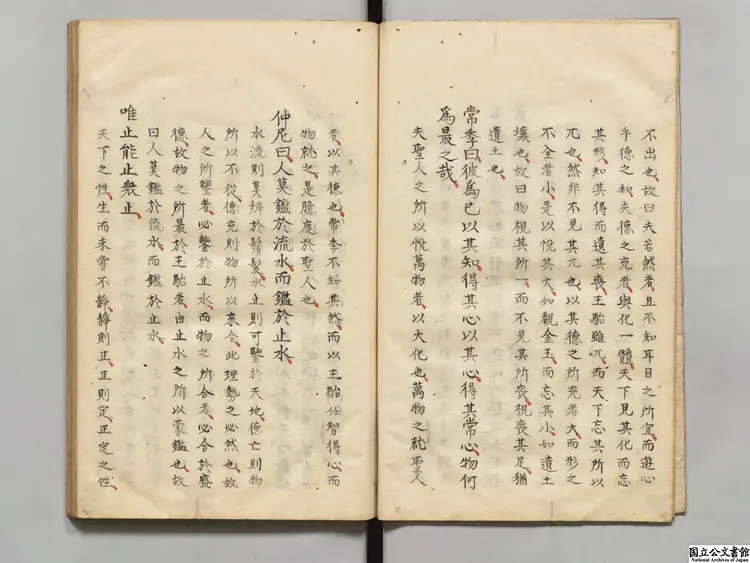 不出也故曰夫若然者且不知耳目之所宜而遊心
乎德之和夫德之充者與化一體天下見其化而忘
其形知其得而遺其喪王駘雖兀而天下忘其所以
兀也然非不見其兀也以其德之所充者大而形之
不全者小是以悅其大如觀金玉而忘其小如遺土
壤也故曰物視其所一而不見其所喪視喪其足猶
遺土也
常季曰彼爲已以其知得其心以其心得其常心物何
爲最之哉
夫聖人之所以悅萬物者以大化也萬物之就聖人
者以其德也常季不知其然而以王駘任智得心而
物就之是臆度於聖人也
仲尼曰人莫鑑於流水而鑑於止水
水流則莫辨於鬚髮水止則可鑒於天地德亡則物
所以不從德充則物所以來合此理勢之必然也故
人之所鑒者必鑒於止水而物之所合者必合於盛
德故物之所最於王駘者由止水之所以蒙鑑也故
曰人莫鑑於流水而鑑於止水
唯止能止衆止
天下之性生而未嘗不靜靜則正正則定正定之性
国立公文書館
National Archives of Japan